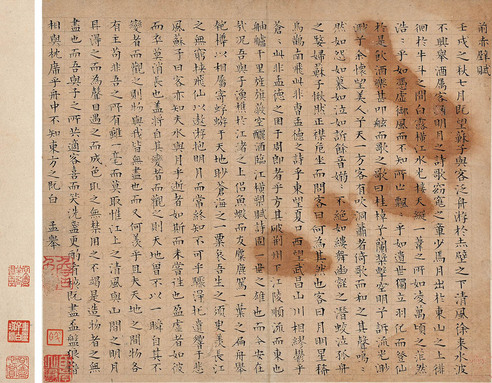 前赤壁賦
壬戌之秋七月既望蘇子與客泛舟游於赤壁之下清風徐來水波
不興舉酒屬客誦明月之詩歌窈窕之章少焉月出於東山之上徘
徊於斗牛之間白露橫江水光接天縱一葦之所如凌萬頃之茫然
浩浩乎如憑虛御風而不知所止飄飄乎如遺世獨立羽化而登仙
於是飲酒樂甚叩舷而歌之歌曰桂棹兮蘭槳擊空明兮訴流光渺
渺兮余懷望美人兮天一方客有吹洞簫者倚歌而和之其聲嗚嗚
然如怨如慕如泣如訴餘音嫋嫋不絕如縷舞幽壑之潛蛟泣孤舟
之嫠婦蘇子愀然正襟危坐而問客曰何為其然也客曰月明星稀
烏鵲南飛此非曹孟德之詩乎東望夏口西望武昌山川相繆鬱乎
蒼蒼此非孟德之困于周郎者乎方其破荊州下江陵順流而東也
舳艫千里旌旗蔽空釃酒臨江橫槊賦詩固一世之雄也而今安在
哉況吾與子漁樵於江渚之上侶魚蝦而友麋鹿駕一葉之扁舟舉
匏樽以相屬寄蜉蝣于天地渺蒼海之一粟哀吾生之須臾羨長江
之無窮挾飛仙以遨遊抱明月而長終知不可乎驟得托遺響于悲
風蘇子曰客亦知夫水與月乎逝者如斯而未嘗往也盈虛者如彼
而卒莫消長也蓋將自其變者而觀之則天地曾不以一瞬自其不
變者而觀之則物與我皆無盡也而又何羨乎且夫天地之間物各
有主苟非吾之所有雖一毫而莫取惟江上之清風與山間之明月
耳得之而為聲目遇之而成色取之無禁用之不竭是造物者之無
盡也而吾與子之所共適客喜而笑洗盞更酌肴核既盡盃盤狼藉
相與枕藉乎舟中不知東方之既白 孟舉